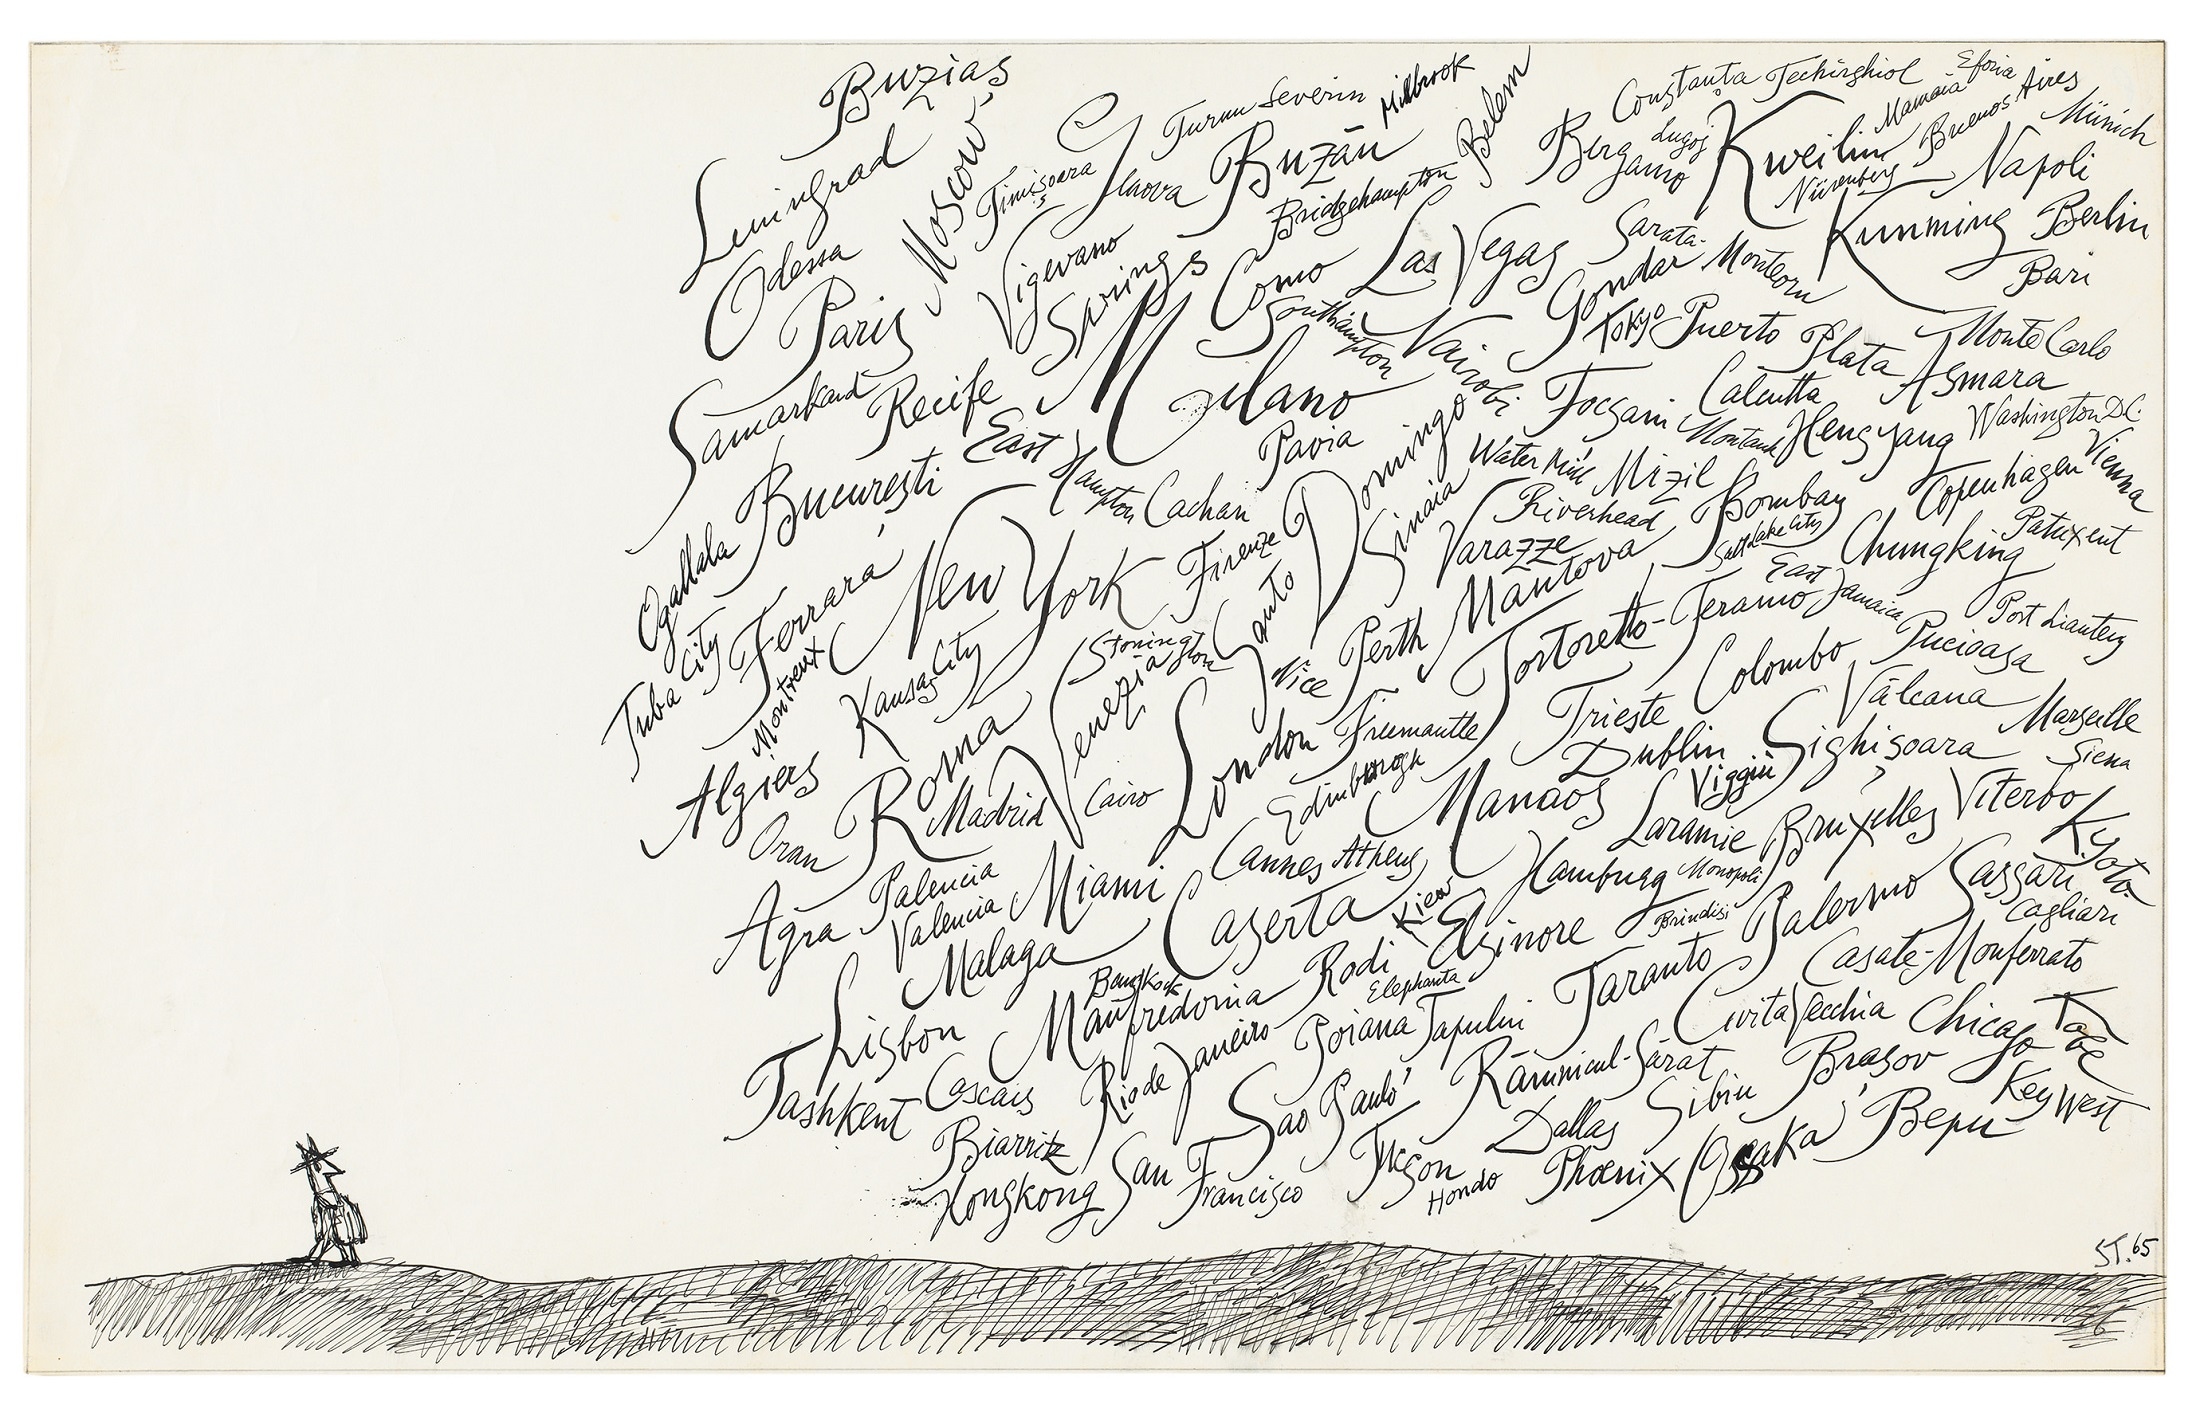 Buzias
Leningrad
Moscow
Timișoara
Turnu Severin
Milbrook
Buzău
Bridgehampton
Belem
Constanta
Techirghiol
Eforia
Mamaia
Buenos Aires
Münich
Bergamo
Lugoj
Kweilin
Nürenberg
Napoli
Odessa
Paris
Vigevano
Springs
Como
Las Vegas
Sarata-
Monteoru
Gondar
Kunming
Berlin
Bari
Southampton
Nairobi
Tokyo
Puerto Plata
Monte Carlo
Samarkand
Recife
Milano
Focsani
Calcutta
Asmara
East Hampton
Pavia
Water Mill
Montauk
Hengyang
Washington D.C.
București
Cachan
Santo Domingo
Sinaia
Mizil
Riverhead
Bombay
Copenhagen
Vienna
Ogallala
New York
Firenze
Varazze
Salt Lake City
Chungking
Patuxent
Tuba City
Ferrara
Montreux
Kansas City
Stonington
Venezia
Nice
Perth
Mantova
Tortoretto-Teramo
East Jamaica
Pucioasa
Algiers
Roma
London
Freemantle
Trieste
Colombo
Vâlcana
Marseille
Oran
Madrid
Cairo
Edinburogh
Manaos
Dublin
Viggiù
Sighișoara
Siena
Agra
Palencia
Valencia
Miami
Cannes
Athens
Laramie
Bruxelles
Viterbo
Kyoto
Malaga
Caserta
Kiew
Elsinore
Hamburg
Monopoli
Brindisi
Palermo
Sassari
Cagliari
Lisbon
Bangkok
Manfredonia
Rodi
Elephanta
Taranto
Casale-Monferrato
Tashkent
Cascais
Rio de Janeiro
Poiana Tapului
Civita Vecchia
Chicago
Biarritz
Sao Paulo
Râmnicul-Sărat
Brașov
Key West
Hongkong
San Francisco
Tucson
Hondo
Dallas
Sibiu
Phœnix
Osaka
Bepu
ST. 65